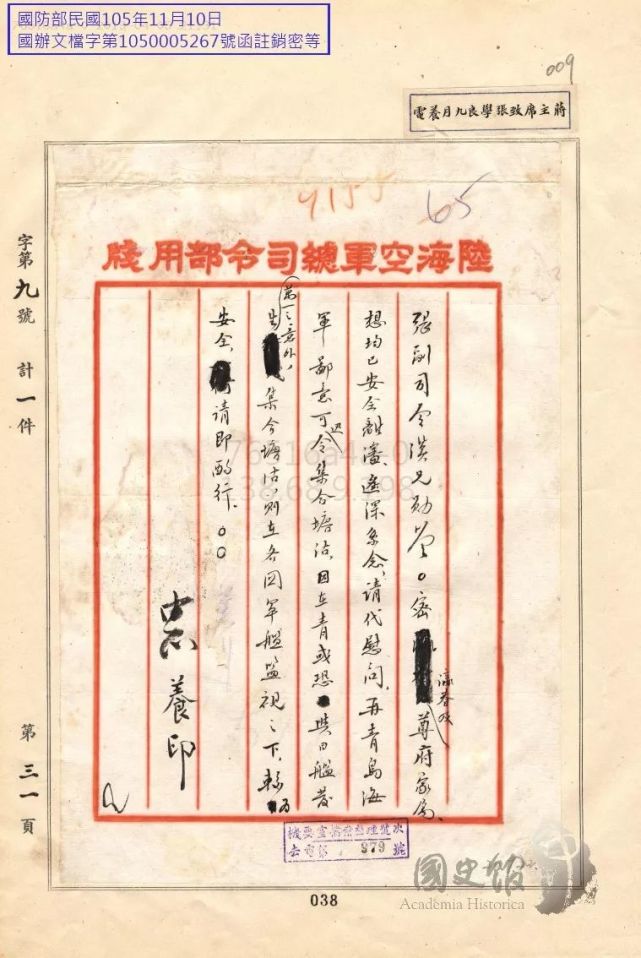 國防部民國105年11月10日
國辦文檔字第1050005267號函註銷密等
009
蔣主席致張學良九月養電
9155
65
陸海空軍總司令部用牋
字第九號 計一件
張副司令漢兄勛鑒○密 瀛眷及尊府家屬、
想均已安全離瀋、遙深系念、請代慰問、再青島海
軍鄙意可迅令集合塘沽、因在青或恐與日艦發
生第一之意外、集合塘沽、則在各國軍艦監視之下、較為
安全、請即酌行、○○
中正養印
第三一頁
去電第 379 號
國史館
Academia Historica
038